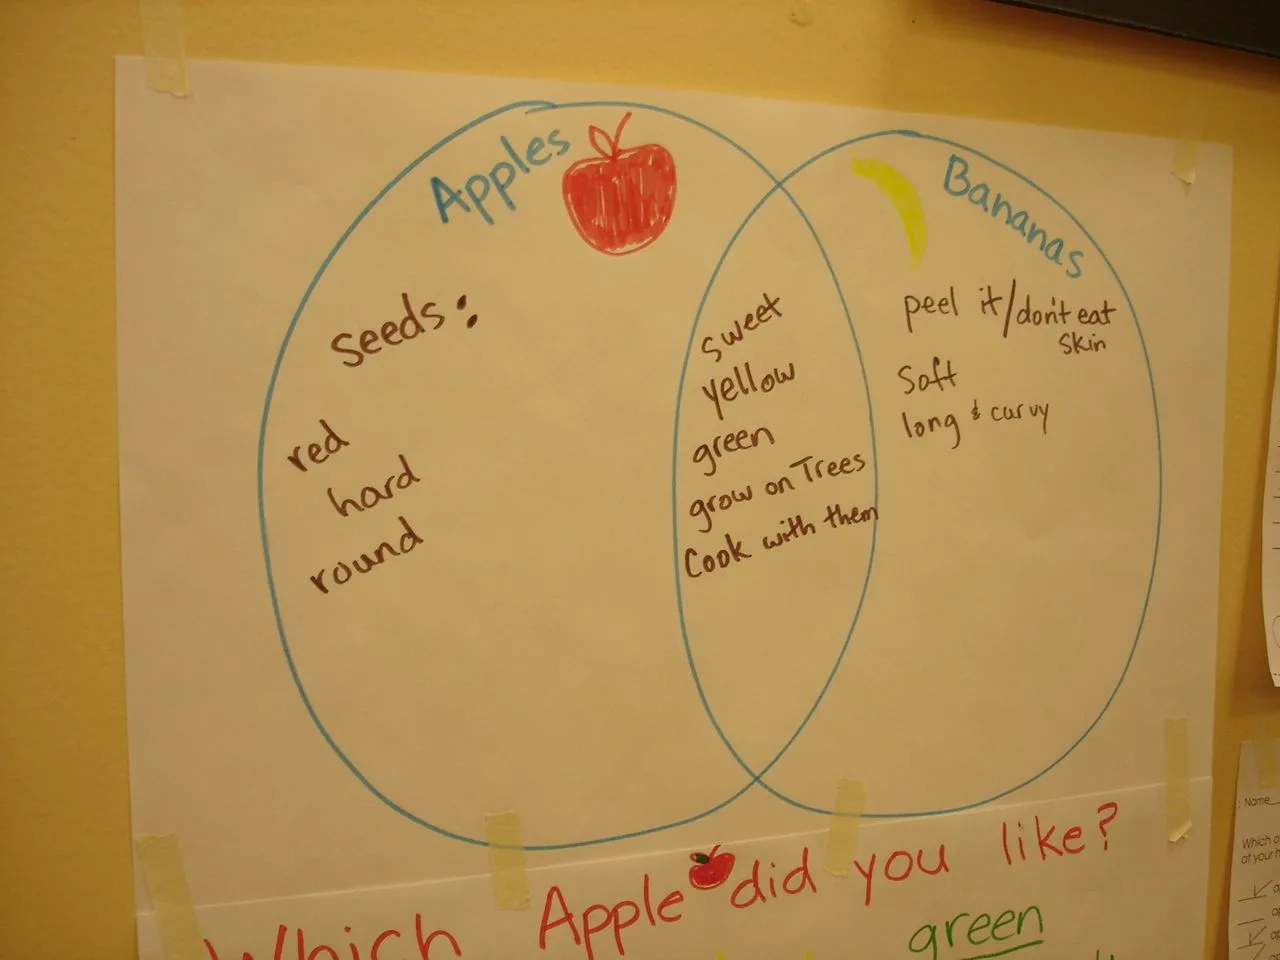 Apples
Bananas
seeds:
red
hard
round
sweet
yellow
green
grow on Trees
Cook with them
peel it/don't eat
skin
Soft
long & curvy
Which Apple did you like?
green
: Name
Which
at your